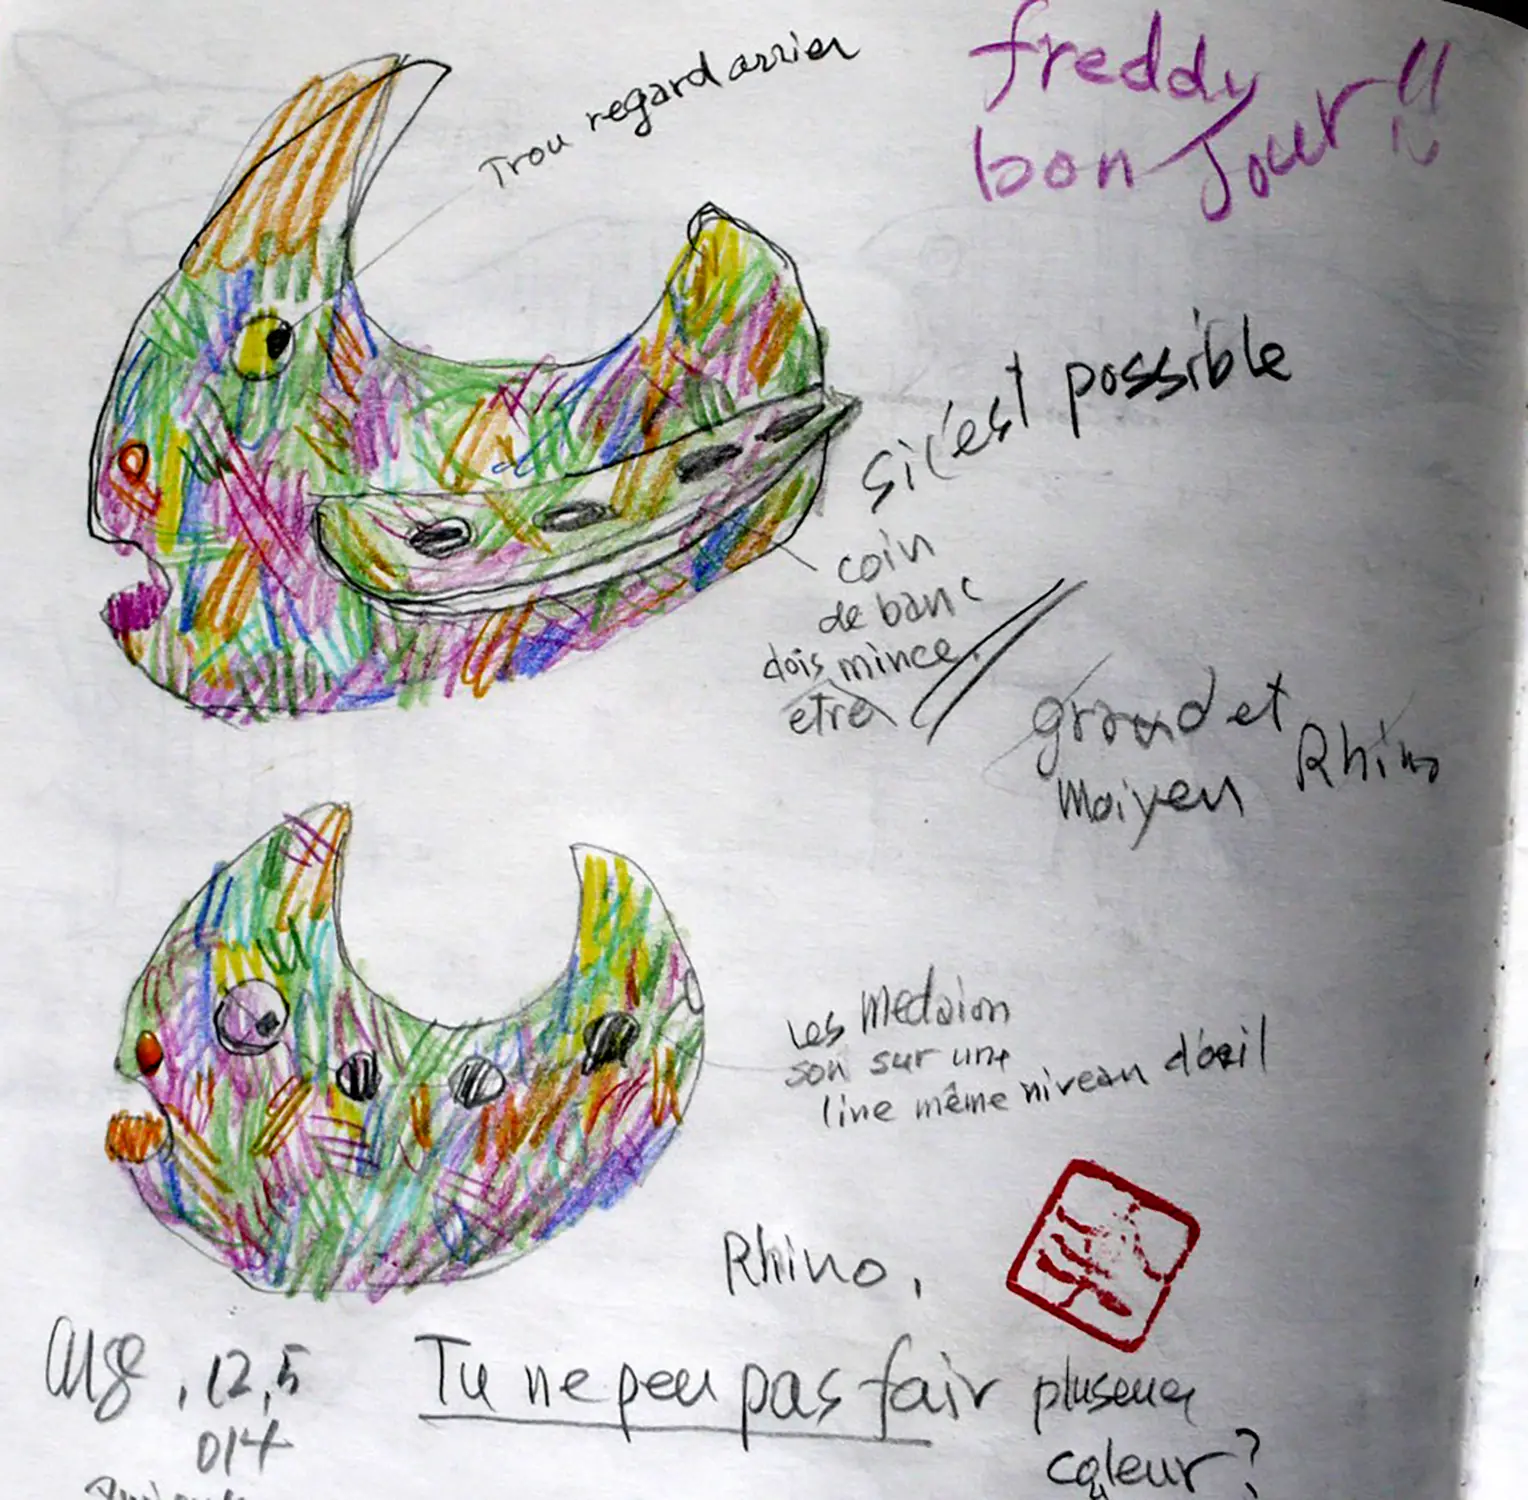 freddy
bon Jour !!
Trou regard arrier
si c'est possible
coin
de banc
dois mince
etre
grand et
moiyen Rhino
Les medaion
son sur une
line même niveau d'œil
Rhino,
, 12, 5
014
Tu ne peu pas fair pluseur
couleur?